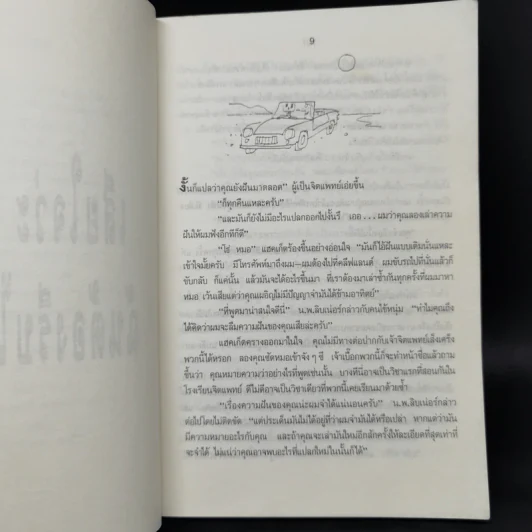 9
งั้นก็แปลว่าคุณยังฝันมาตลอด” ผู้เป็นจิตแพทย์เอ่ยขึ้น
“ก็ทุกคืนแหละครับ”
“และมันก็ยังไม่มีอะไรแปลกออกไปงั้นรึ เถอะ...ผมว่าคุณลองเล่าความ
ฝันให้ผมฟังอีกทีก็ดี”
“โธ่ หมอ” แฮคเก็ตร้องขึ้นอย่างอ่อนใจ “มันก็ไอ้ฝันแบบเดิมนั่นแหละ
เข้าใจมั้ยครับ มีโทรศัพท์มาถึงผม—ผมต้องไปที่คลีฟแลนด์ ผมขับรถไปที่นั่นแล้วก็
ขับกลับ ก็แค่นั้น แล้วมันจะได้อะไรขึ้นมา ที่เราต้องมาเล่าซ้ำกันทุกครั้งที่ผมมาหา
หมอ เว้นเสียแต่ว่าคุณเผอิญไม่มีปัญญาจำมันได้ข้ามอาทิตย์”
“ที่พูดมาน่าสนใจดีนี่” น.พ.ลิบเน่อร์กล่าวกับคนไข้หนุ่ม “ทำไมคุณถึง
ได้คิดว่าผมจะลืมความฝันของคุณเสียล่ะครับ”
แฮคเก็ตครางออกมาในใจ คุณไม่มีทางต่อปากกับเจ้าจิตแพทย์เส็งเคร็ง
พวกนี้ได้หรอก ลองคุณขัดหมอเข้าจังๆ ซี เจ้าเบื๊อกพวกนี้ก็จะทำหน้าซื่อแล้วถาม
ขึ้นว่า คุณหมายความว่าอย่างไรที่พูดเช่นนั้น บางทีนี่อาจเป็นวิชาแรกที่สอนกันใน
โรงเรียนจิตแพทย์ ดีไม่ดีอาจเป็นวิชาเดียวที่พวกนี้เคยเรียนมาด้วยซ้ำ
“เรื่องความฝันของคุณน่ะผมจำได้แน่นอนครับ” น.พ.ลิบเน่อร์กล่าว
ต่อไปโดยไม่ติดขัด “แต่ประเด็นมันไม่ได้อยู่ที่ว่าผมจำมันได้หรือเปล่า หากแต่ว่ามัน
มีความหมายอะไรกับคุณ และถ้าคุณจะเล่ามันใหม่อีกสักครั้งให้ละเอียดที่สุดเท่าที่
จะจำได้ ไม่แน่ว่าคุณอาจพบอะไรที่แปลกใหม่ในนั้นก็ได้”